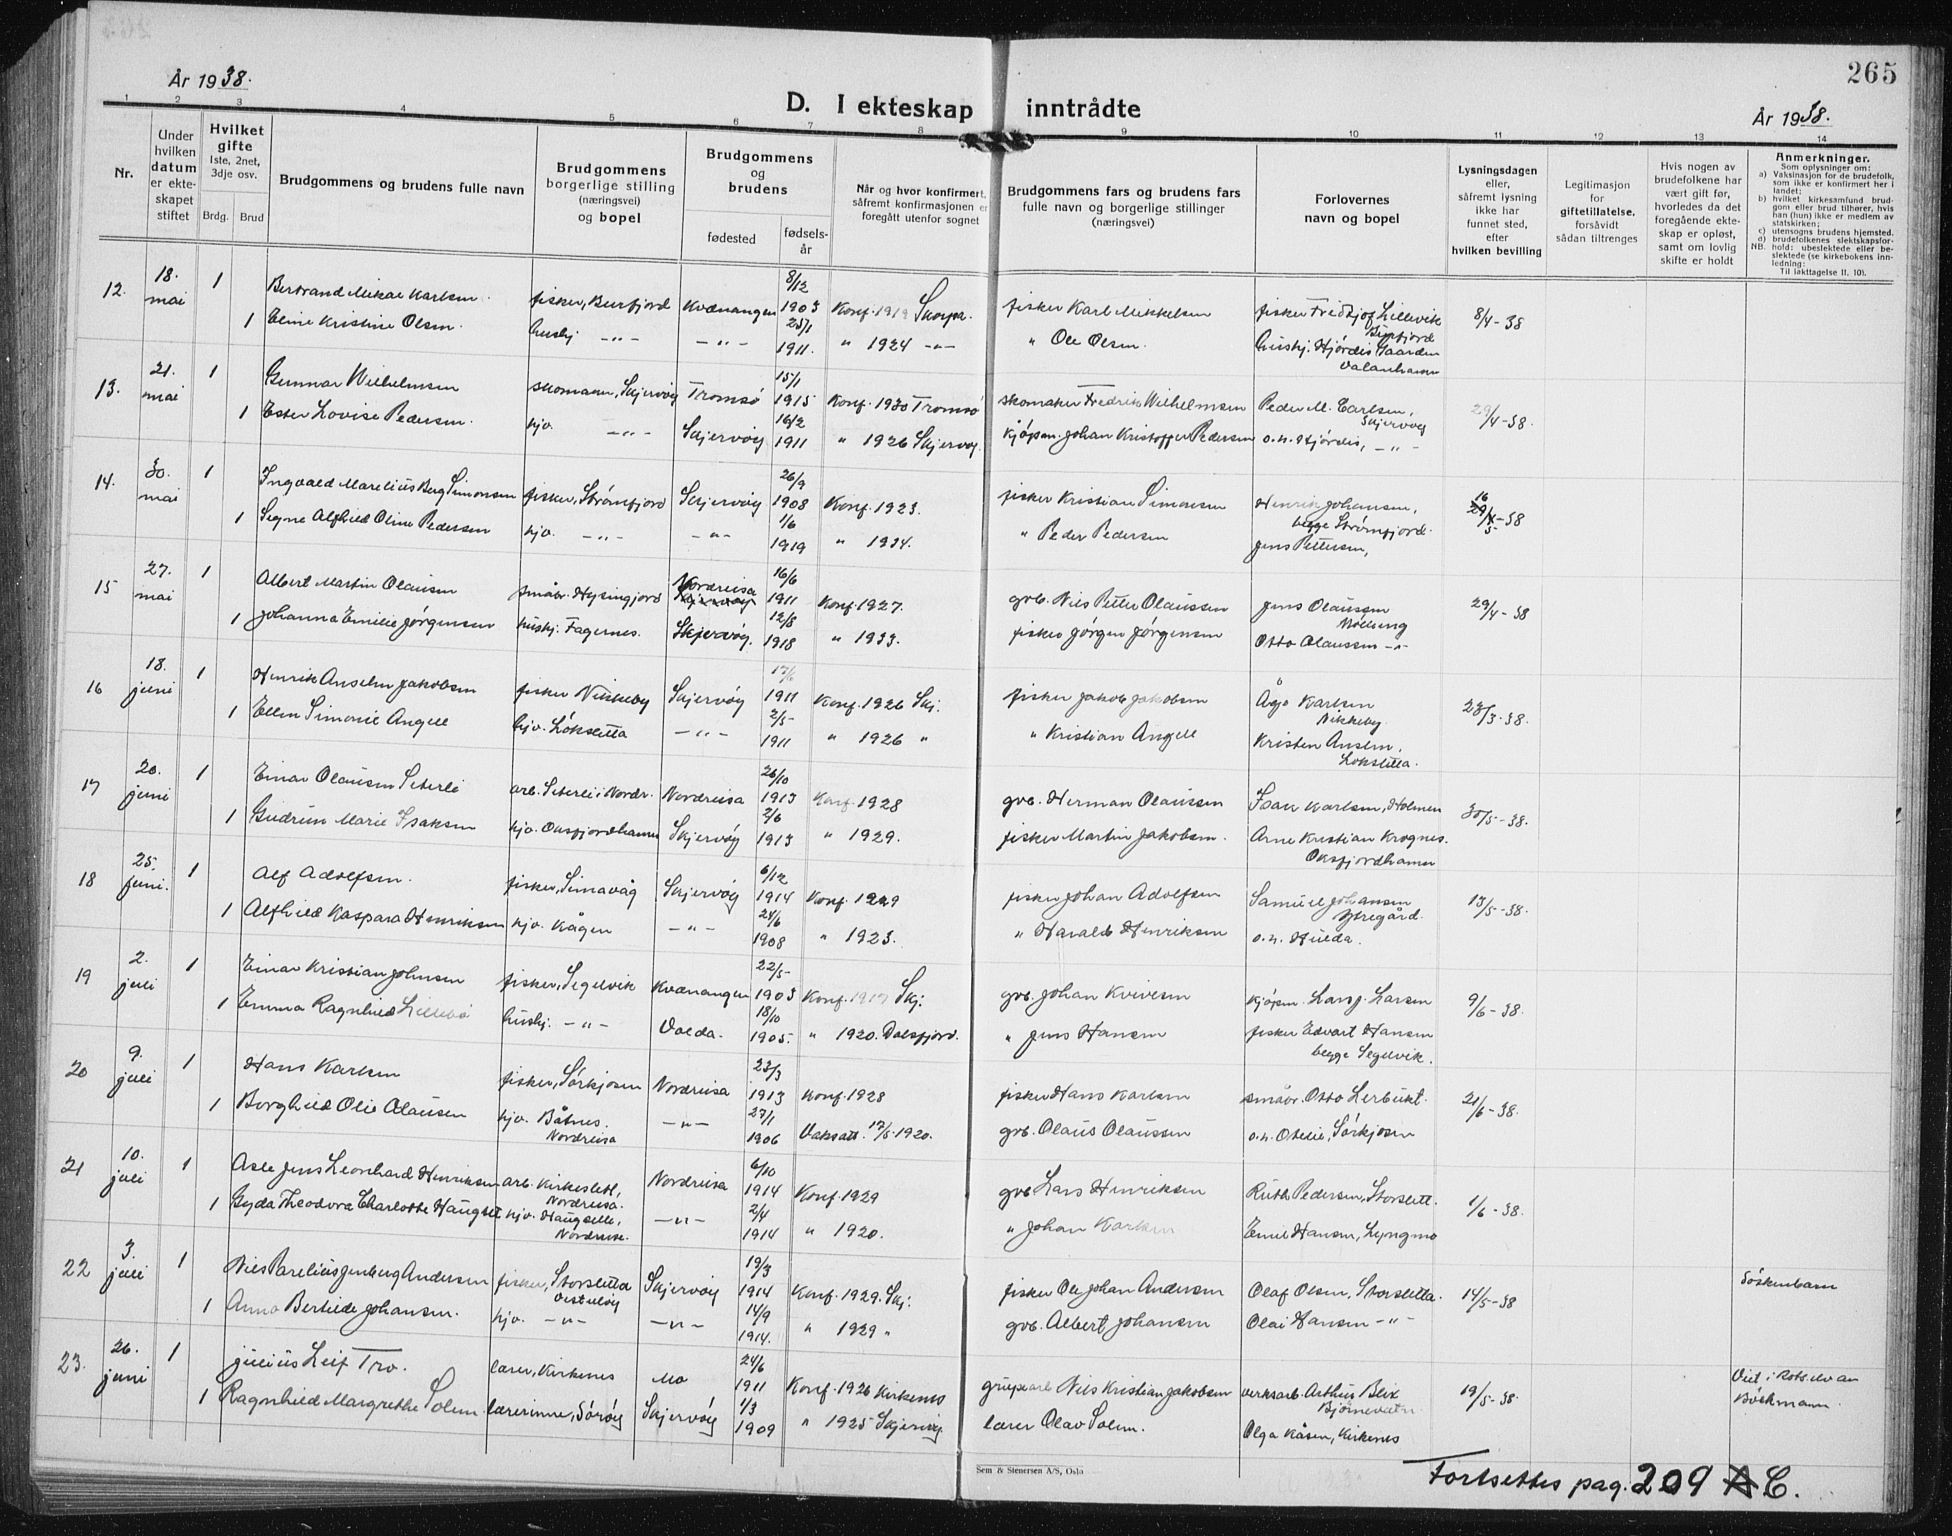 År 1938.
265
D. I ekteskap inntrådte
År 1938.
1 2 3 4 5 6 7 8 9 10 11 12 13 14
Nr.
Under hvilken datum er ekteskapet stiftet
Hvilket gifte
1ste, 2net, 3dje osv.
Brdg. Brud
Brudgommens og brudens fulle navn
Brudgommens borgerlige stilling (næringsvei) og bopel
Brudgommens og brudens
fødested
fødselsår
Når og hvor konfirmert, såfremt konfirmasjonen er foregått utenfor sognet
Brudgommens fars og brudens fars fulle navn og borgerlige stillinger (næringsvei)
Forlovernes navn og bopel
Lysningsdagen eller, såfremt lysning ikke har funnet sted, efter hvilken bevilling
Legitimasjon for giftetillatelse, forsåvidt sådan tiltrenges
Hvis nogen av brudefolkene har vært gift før, hvorledes da det foregående ekteskap er opløst, samt om lovlig skifte er holdt
Anmerkninger.
Som oplysninger om:
a) Vaksinasjon for de brudefolk, som ikke er konfirmert her i landet;
b) hvilket kirkesamfund brudgom eller brud tilhører, hvis han (hun) ikke er medlem av statskirken;
c) utensogns brudens hjemsted.
d) brudefolkenes slektskapsforhold: ubeslektede eller beslektede (se kirkebokens innledning:
NB.
Til iakttagelse II, 10).
12. 18. mai 1 Bertrand Mikal Karlsen. fisker, Burfjord Kvænangen 8/12 1903 Konf. 1919 Skorpa. fisker Karl Mikkelsen fisker Fridtjof Lillevik Burfjord 8/4-38
1 Eline Kristine Olsen. hushj. -"- -"- 25/1 1911. " 1924 -"- " Ole Olsen. hushj. Hjørdis Gaarden
13. 21. mai 1 Gunnar Wilhelmsen skomaker, Skjervøy Tromsø 15/1 1915 Konf. 1930 Tromsø skomaker Fredrik Wilhelmsen Peder M. Carlsen, Skjervøy 29/4-38.
1 Ester Lovise Pedersen. hjv. -"- Skjervøy 16/2 1911 " 1926 Skjervøy. kjøpm. Johan Kristoffer Pedersen o.h. Hjørdis, -"-
14. 30. mai 1 Ingvald Marelius Berg Simonsen fisker, Strømfjord Skjervøy 26/9 1908 Konf. 1923. fisker Kristian Simonsen Henrik Johansen, begge Strømfjord. 16/5-38
1 Signe Alfhild Oline Pedersen hjv. -"- -"- 1/6 1919 " 1934. " Peder Pedersen Jens Pettersen,
15 27. mai 1 Albert Martin Olaussen småbr. Hysingjord Nordreisa Skjervøy 16/6 1911 Konf. 1927. gvb. Nils Petter Olaussen Jens Olaussen 29/4-38
1 Johanna Emilie Jørgensen hushj. Fagernes. Skjervøy. 12/8 1918 " 1933. fisker Jørgen Jørgensen Otto Olaussen -"-
16 18. juni 1 Henrik Anselm Jakobsen fisker Nikkeby Skjervøy 17/6 1911 Konf. 1926 Skj. fisker Jakob Jakobsen Åge Karlsen Nikkeby. 23/3-38.
1 Ellen Simonie Angell hjv. Løksletta -"- 2/5- 1911 " 1926 " " Kristian Angell Kristen Anselm, Løksletta.
17 20. juni 1 Einar Olaussen Seterli arb. Seterli i Nordr. Nordreisa 26/10 1913 Konf. 1928 gvb. Herman Olaussen Isak Karlsen, Holmen 30/5-38.
1 Gudrun Marie Isaksen hjv. Oksfjordhamn Skjervøy 2/6 1913 " 1929. fisker Martin Jakobsen. Arne Kristian Krognes. Oksfjordhamn
18 25. juni. 1 Alf Adolfsen. fisker, Simavåg Skjervøy 6/12 1914 Konf. 1929 fisker Johan Adolfsen Samuel Johansen Ytregård. 13/5-38.
1 Alfhild Kaspara Henriksen hjv. Kågen -"- 24/6 1908 " 1923. " Harald Henriksen o.h. Hulda.
19 2. juli 1 Einar Kristian Johnsen fisker, Segelvik Kvænangen 22/5- 1903 Konf. 1917 Skj: gvb. Johan Kvivesen kjøpm. Lars J. Larsen 9/6-38.
1 Emma Ragnhild Lillebø hushj. -"- Volda. 18/10 1905. " 1920. Dalsfjord. " Jens Hansen fisker Edvart Hansen begge Segelvik.
20 9. juli 1 Hans Karlsen fisker, Sørkjosen Nordreisa 23/3 1913 Konf. 1928 fisker Hans Karlsen småbr. Otto Lerbukt. 21/6-38.
1 Borghild Olie Olaussen hjv. Båtnes. Nordreisa -"- 27/1 1906 Vaksatt. 17/5-1920. gvb. Olaus Olaussen o.h. Otelie, Sørkjosen
21 10. juli 1 Asle Jens Leonhard Henriksen arb. Kirkeslett, Nordreisa. Nordreisa 6/10 1914 Konf. 1929 gvb Lars Henriksen Ruth Pedersen, Storslett. 1/6-38.
1 Gyda Theodora Charlotte Haugset hjv. Haugselle, Nordreise. -"- 2/4 1914 " 1920. " Johan Karlsen Emil Hansen, Lyngmo
22 3. juli 1 Nils Parelius Jenberg Andersen fisker, Storsletta Skjervøy 19/3 1914 Konf. 1929. Skj: fisker Ole Johan Andersen Olaf Olsen, Storsletta. 14/5-38 Søskenbarn
1 Anna Berhilde Johansen. hjv. -"- -"- 14/9 1914. " 1929 " gvb. Albert Johansen Olai Hansen -"-
23. 26. juni 1 Julius Leif Tro. lærer, Kirkenes Mo 24/6 1911 Konf. 1926 Kirkenes grubearb Nils Kristian Jakobsen verksarb. Arthur Blix Bjørnevatn 19/5-38 Viet i Rotsund av Bøckmann.
1 Ragnhild Margrethe Solem lærerinne, Sørøy Skjervøy 1/3 1909 " 1925 Skjervøy lærer Olav Solem. Olga Kåsen, Kirkenes
Sem & Stenersen A/S, Oslo
Fortsettes pag. 209 C.